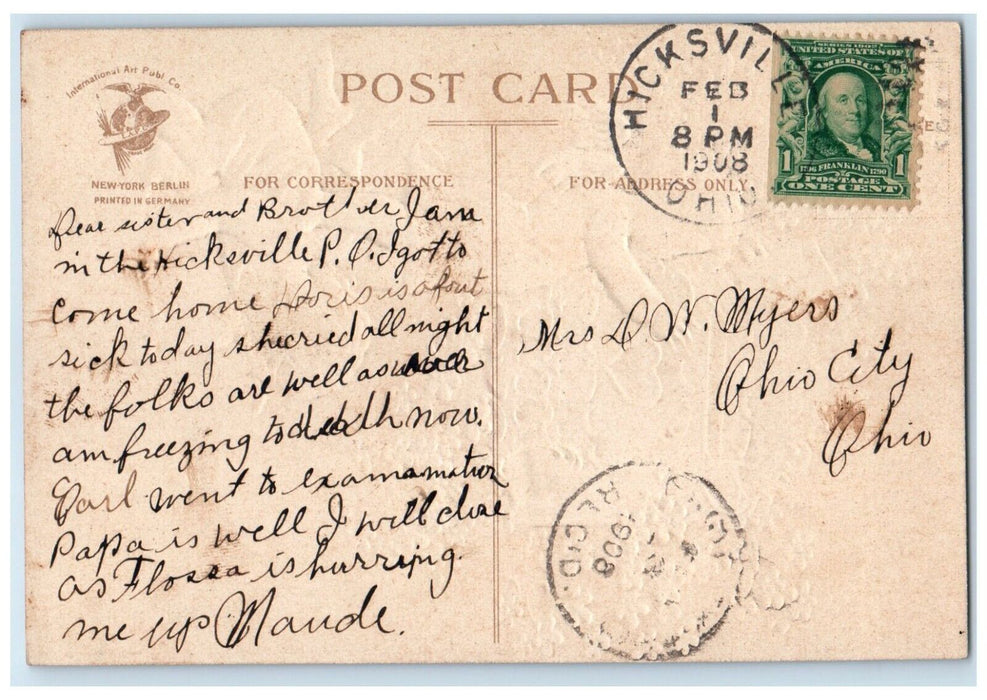 International Art Publ. Co.
NEW-YORK BERLIN
PRINTED IN GERMANY
POST CARD
FOR CORRESPONDENCE
FOR ADDRESS ONLY
HICKSVILLE
FEB
1
8 PM
1908
OHIO
SERIES 1902
UNITED STATES OF
AMERICA
1790 FRANKLIN 1790
POSTAGE
1 1
ONE CENT
Dear sister and Brother I am
in the Hicksville P. O. I got to
come home Doris is about
sick today she cried all night
the folks are well as ever
am freezing to death now.
Earl went to examamation
Papa is well I will close
as Flossa is hurrying
me up Maude.
Mrs D W. Myers
Ohio City
Ohio
REC'D.
1908